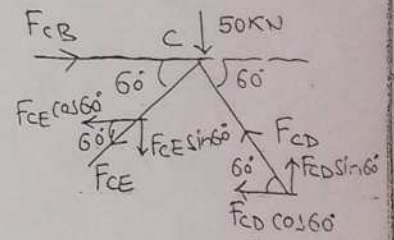 FCB
C
50KN
60°
60°
FCE cos60°
60°
FCE sin60°
FCE
FCD
60°
FCD sin60°
FCD cos60°